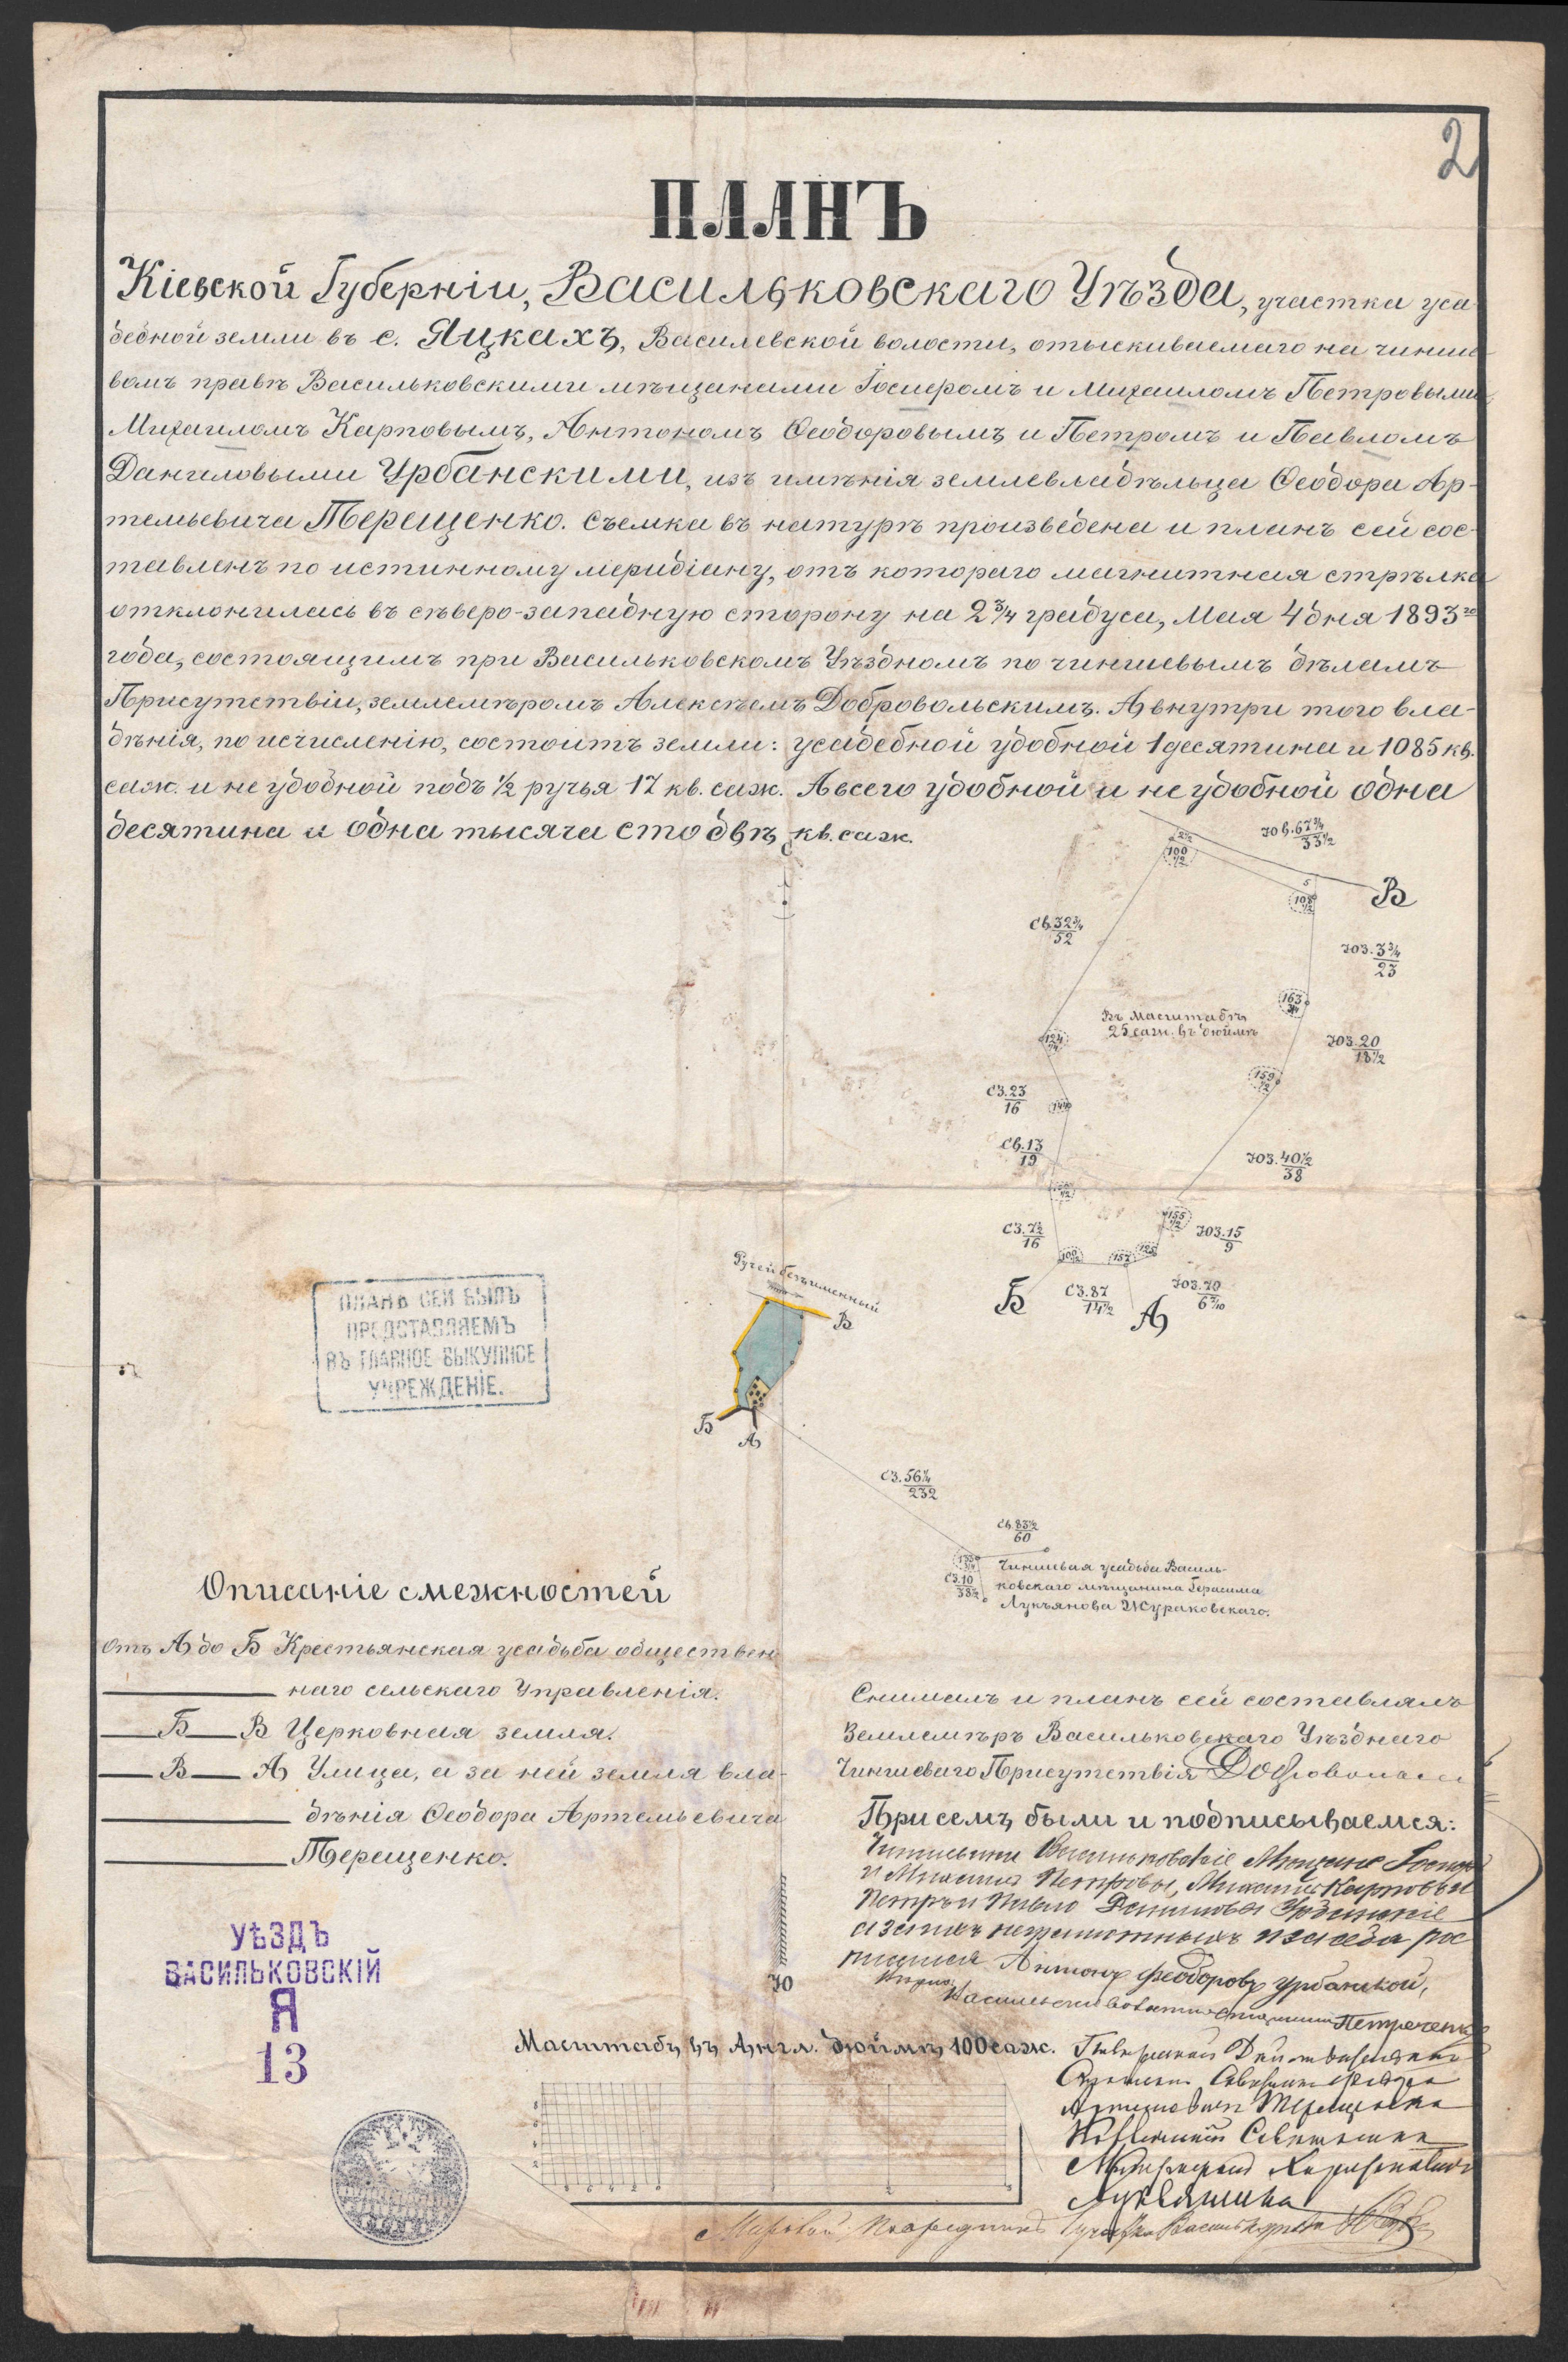 2
ПЛАНЪ
Кіевской Губерніи, Васильковскаго Уѣзда, участка уса-
дебной земли въ с. Яцкахъ, Василевской волости, отыскиваемаго на чинше-
вомъ правѣ Васильковскими мѣщанами Іосифомъ и Михаиломъ Петровыми,
Михаиломъ Карповымъ, Антономъ Ѳеодоровымъ и Петромъ и Павломъ
Даниловыми Урбанскими, изъ имѣнія землевладѣльца Ѳеодора Ар-
темьевича Терещенко. Съемка въ натурѣ произведена и планъ сей сос-
тавленъ по истинному меридіану, отъ котораго магнитная стрѣлка
отклонилась въ сѣверо-западную сторону на 2 3/4 градуса, Мая 4 дня 1893го
года, состоящимъ при Васильковскомъ Уѣздномъ по чиншевымъ дѣламъ
Присутствіи, землемѣромъ Алексѣемъ Добровольскимъ. А внутри того вла-
дѣнія, по исчисленію, состоитъ земли: усадебной удобной 1 десятина и 1085 кв.
саж. и не удобной подъ 1/2 ручья 17 кв. саж. А всего удобной и не удобной одна
десятина и одна тысяча сто двѣ кв. саж.
С
ЮВ. 67 3/4
33 1/2
2 1/2
100
1/2
5
108
1/2
В
СВ. 32 3/4
52
ЮЗ. 3 3/4
23
163
3/4
Въ масштабѣ
25 саж. въ дюймѣ
124
1/4
ЮЗ. 20
18 1/2
159
1/2
СЗ. 23
16
144
СВ. 13
19
ЮЗ. 40 1/2
38
СЗ. 7 1/2
16
155
1/2
ЮЗ. 15
9
100
1/2
157
125
Б
СЗ. 87
14 1/2
А
ЮЗ. 70
6 7/10
Ручей безъименный
В
Б
А
ПЛАНЪ СЕЙ БЫЛЪ
ПРЕДСТАВЛЯЕМЪ
ВЪ ГЛАВНОЕ ВЫКУПНОЕ
УЧРЕЖДЕНІЕ.
СЗ. 56 1/4
232
СВ. 83 1/2
60
СЗ. 10
38 1/2
Чиншевая усадьба Василь-
ковскаго мѣщанина Герасима
Лукьянова Жураковскаго.
Описаніе смежностей
Отъ А до Б Крестьянская усадьба обществен-
наго сельскаго Управленія.
Б В Церковная земля.
В А Улица, а за ней земля вла-
дѣнія Ѳеодора Артемьевича
Терещенко.
Снималъ и планъ сей составлялъ
Землемѣръ Васильковскаго Уѣзднаго
Чиншеваго Присутствія Добровольскій
При семъ были и подписываемся:
Чиншевики Васильковскіе Мѣщане Іосифъ
и Михаилъ Петровы, Михаилъ Карповъ и
Петръ и Павло Даниловы Урбанскіе
а за нихъ неграмотныхъ и за себя рос
писался Антонъ Феодоровъ Урбанской,
Старшина Петрученко
Терещенко
УѢЗДЪ
ВАСИЛЬКОВСКІЙ
Я
13
Ю
Масштабъ въ Англ. дюймѣ 100 саж.
8
6
4
2
8 6 4 2 0 1 2 3
Мировой Посредникъ